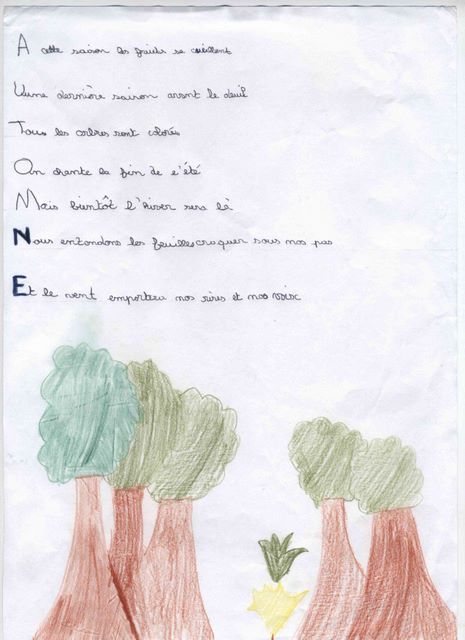 A cette saison les fruits se cueillent
Uune dernière saison avant le deuil
Tous les arbres sont colorés
On chante la fin de l'été
Mais bientôt l'hiver sera là
Nous entendons les feuilles craquer sous nos pas
Et le vent emportera nos rires et nos voix